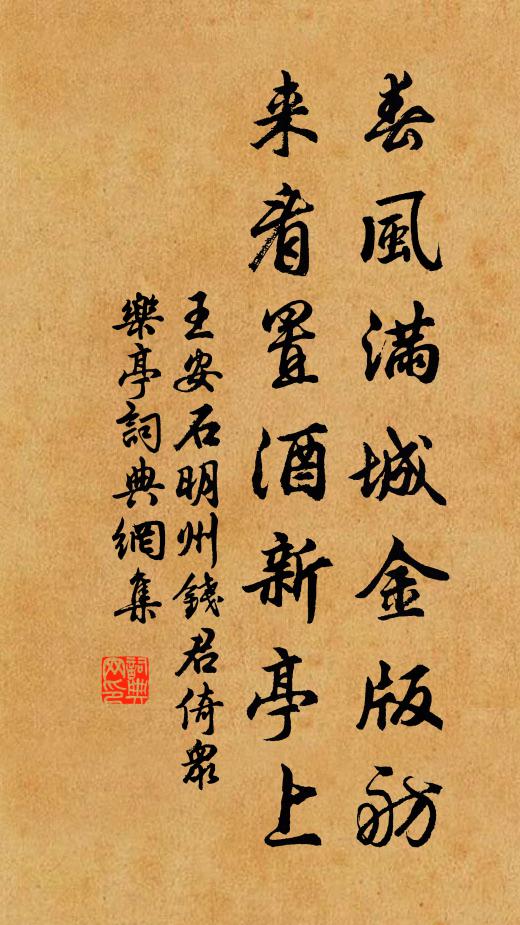 春風滿城金版舫
来看置酒新亭上
王安石明州錢君倚衆
樂亭詞典網集
詞典网印